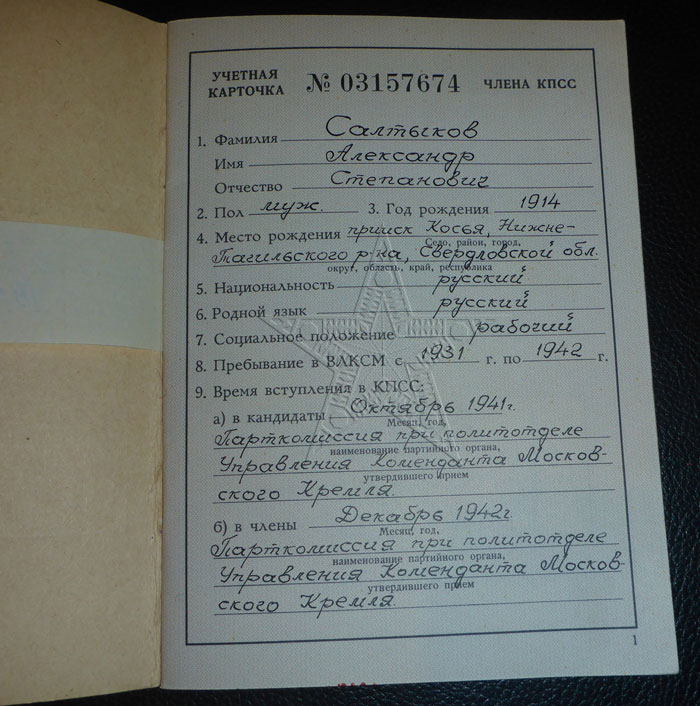 УЧЕТНАЯ КАРТОЧКА № 03157674 ЧЛЕНА КПСС
1. Фамилия Салтыков
Имя Александр
Отчество Степанович
2. Пол муж. 3. Год рождения 1914
4. Место рождения прииск Косья, Нижне-
Село, район, город,
Тагильского р-на, Свердловской обл.
округ, область, край, республика
5. Национальность русский
6. Родной язык русский
7. Социальное положение рабочий
8. Пребывание в ВЛКСМ с 1931 г. по 1942 г.
9. Время вступления в КПСС:
а) в кандидаты Октябрь 1941г.
Месяц, год,
Парткомиссия при политотделе
наименование партийного органа,
Управления Коменданта Москов-
утвердившего прием
ского Кремля.
б) в члены Декабрь 1942г.
Месяц, год,
Парткомиссия при политотделе
наименование партийного органа,
Управления Коменданта Москов-
утвердившего прием
ского Кремля.
1